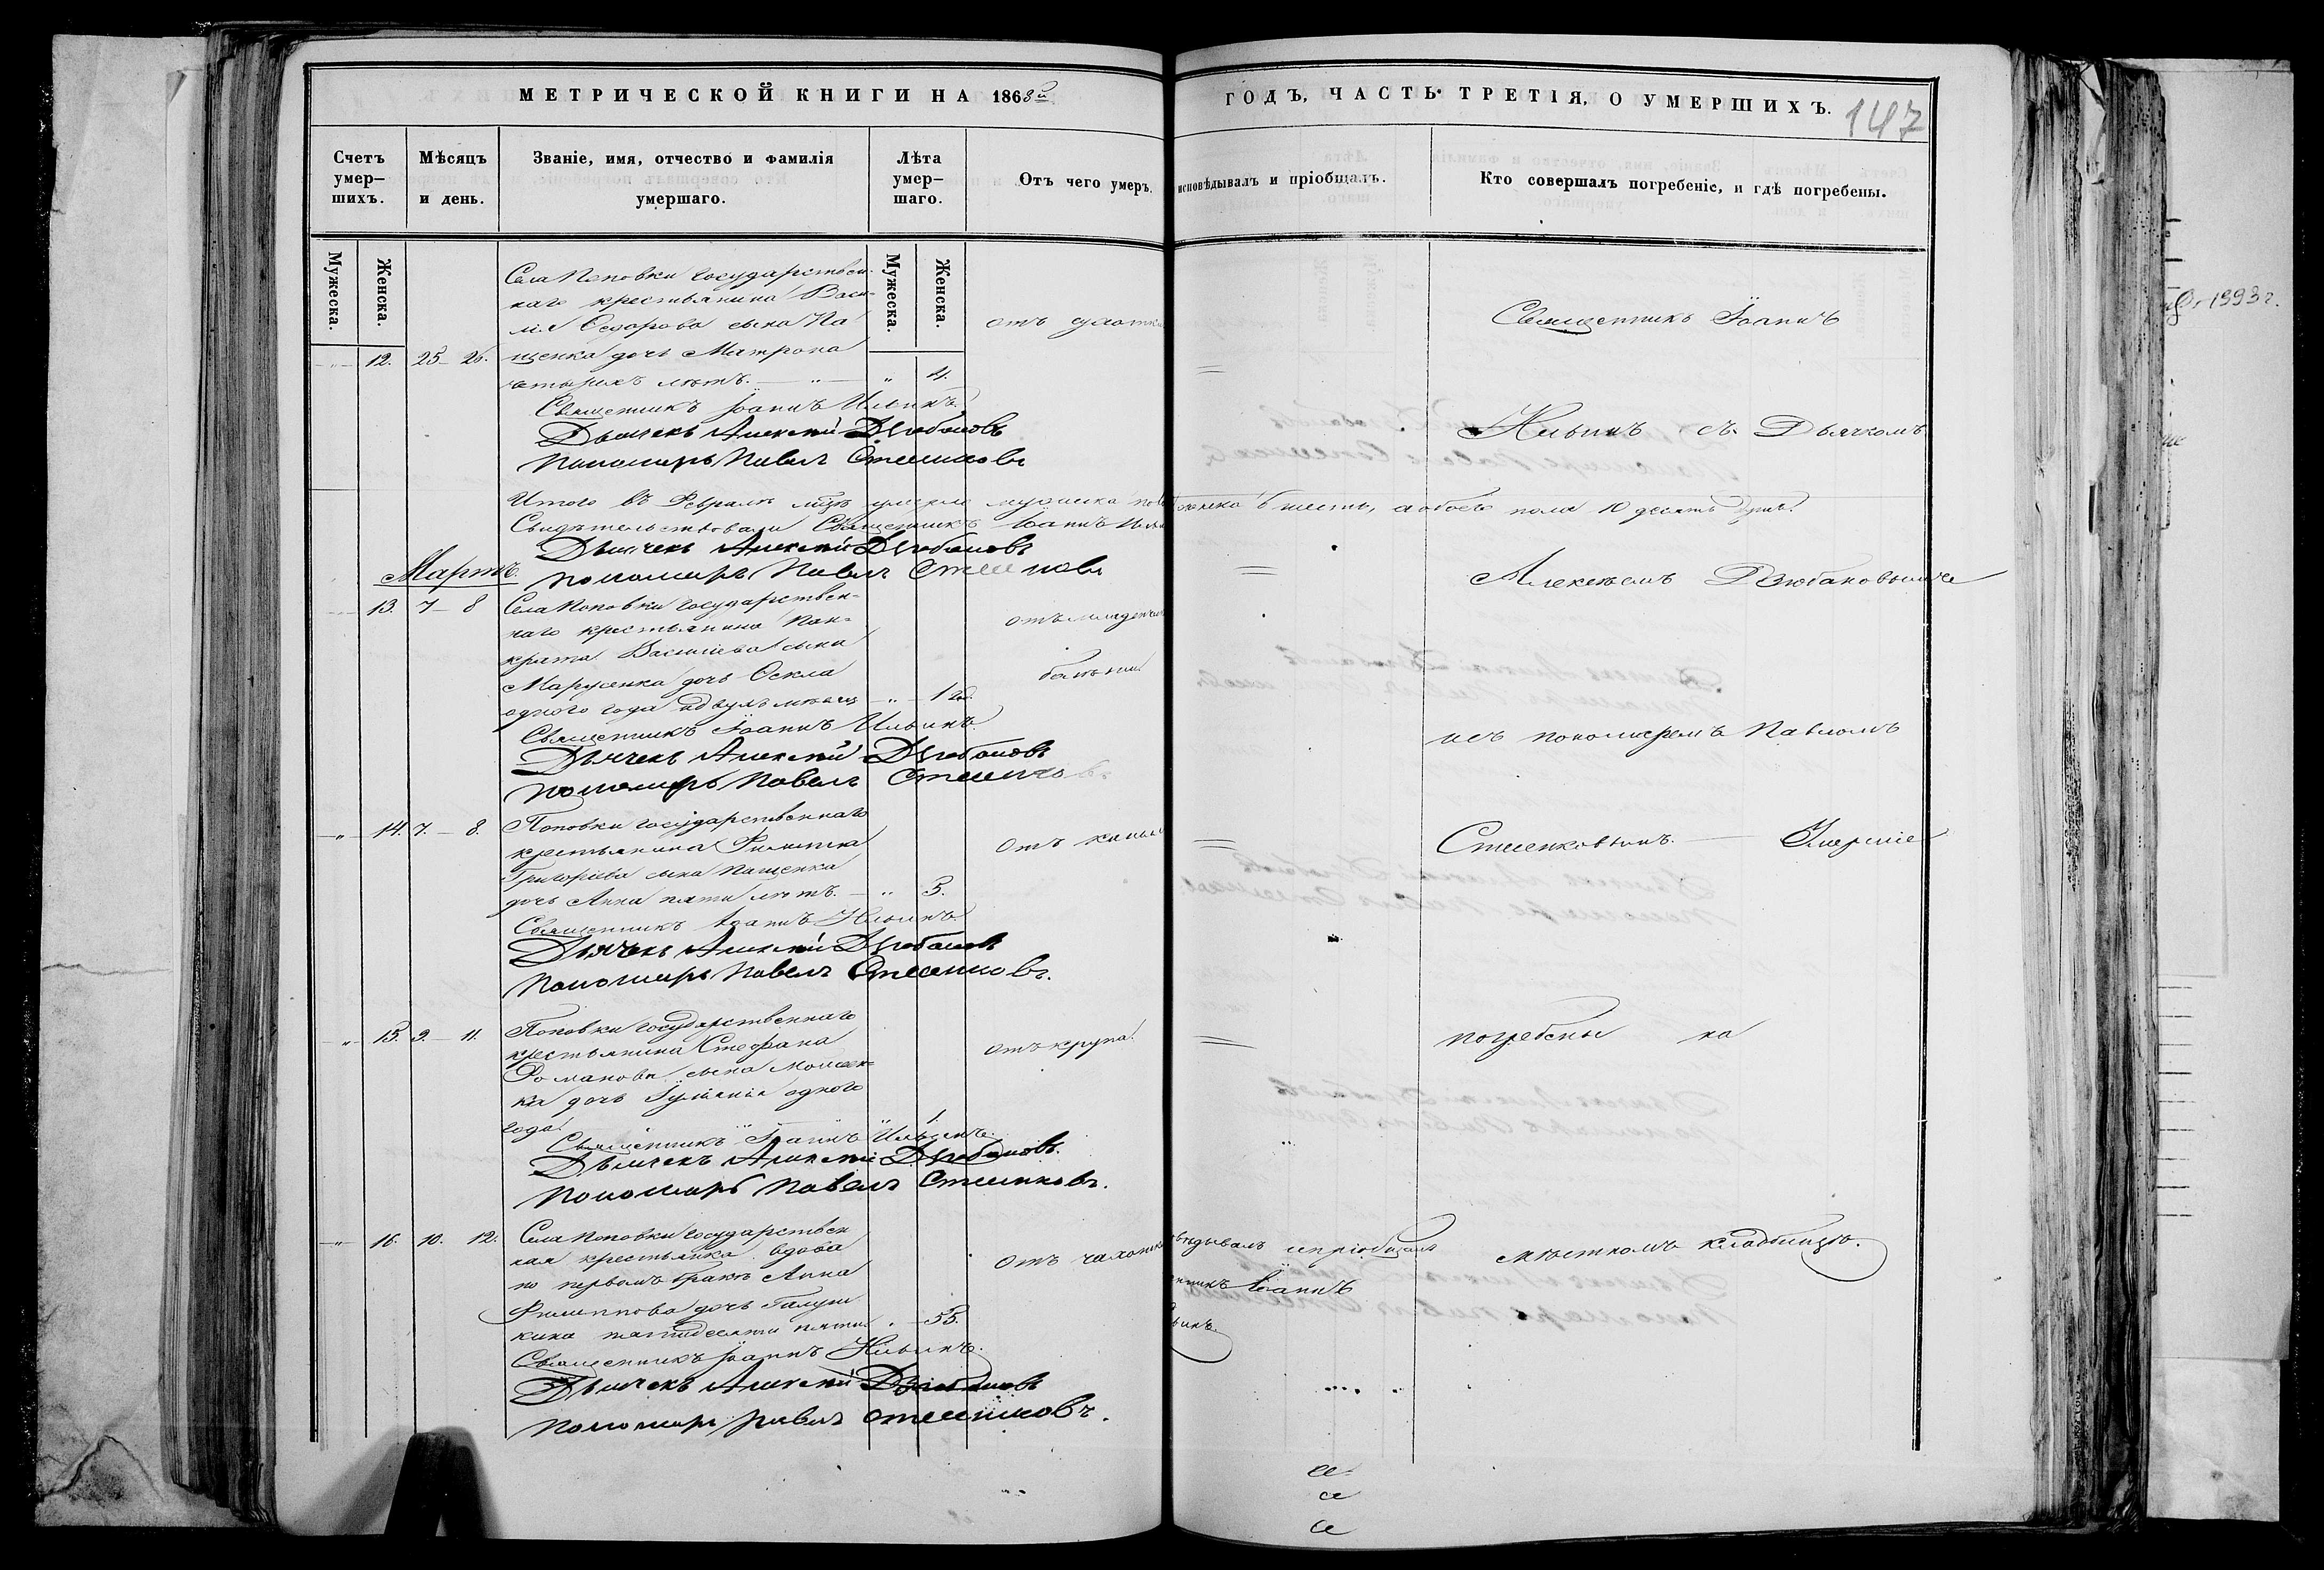 МЕТРИЧЕСКОЙ КНИГИ НА 1868й
ГОДЪ, ЧАСТЬ ТРЕТІЯ, О УМЕРШИХЪ.
147
Счетъ умер-
шихъ.
Мѣсяцъ
и день.
Званіе, имя, отчество и фамилія
умершаго.
Лѣта
умер-
шаго.
Отъ чего умеръ.
исповѣдывалъ и пріобщалъ.
Кто совершалъ погребеніе, и гдѣ погребены.
Мужеска.
Женска.
Мужеска.
Женска.
Села Поповки государствен-
наго крестьянина Васи-
лія Ѳедорова сына Па
12. 25 - 26. щенка дочь Матрона
четырехъ лѣтъ. 4.
Священникъ Іоаннъ Ильинъ.
Дьячекъ Алексѣй Дзюбановъ
Пономарь Павелъ Стеенковъ
Итого въ Февралѣ мцѣ умерло мужеска
женска 6 шесть, а обоего пола 10 десять душъ.
Свидѣтельствовали Священникъ Іоаннъ
Дьячекъ Алексѣй Дзюбановъ
Мартъ.
Пономарь Павелъ Стеенковъ
13. 7 - 8 Села Поповки государствен-
наго крестьянина Пан-
крата Васильева сына
дочь
одного года
болѣзни
Священникъ Іоаннъ Ильинъ
Дьячекъ Алексѣй Дзюбановъ
Пономарь Павелъ Стеенковъ
14. 7. - 8. Поповки государственнаго
крестьянина Филиппа
Григорьева сына Пащенка
дочь Анна пяти лѣтъ. 5.
Священникъ Іоаннъ Ильинъ
Дьячекъ Алексѣй Дзюбановъ
Пономарь Павелъ Стеенковъ.
15. 9. - 11. Поповки государственнаго
крестьянина Стефана
Романова сына Моисеен-
ка дочь Іуліанія одного
года 1.
отъ крупа
Священникъ Іоаннъ Ильинъ.
Дьячекъ Алексѣй Дзюбановъ.
Пономарь Павелъ Стеенковъ.
16. 10. 12. Села Поповки государствен
ная крестьянка вдова
по первомъ бракѣ Анна
Филиппова дочь Галуш
кина пятидесяти пяти 55.
Священникъ Іоаннъ Ильинъ.
Дьячекъ Алексѣй Дзюбановъ
Пономарь Павелъ Стеенковъ.
и пріобщалъ
Іоаннъ
Священникъ Іоаннъ
Ильинъ съ Дьячкомъ
Алексѣемъ Дзюбановымъ
и съ пономаремъ Павломъ
Стеенковымъ. Умершіе
погребены на
мѣстномъ кладбищѣ.